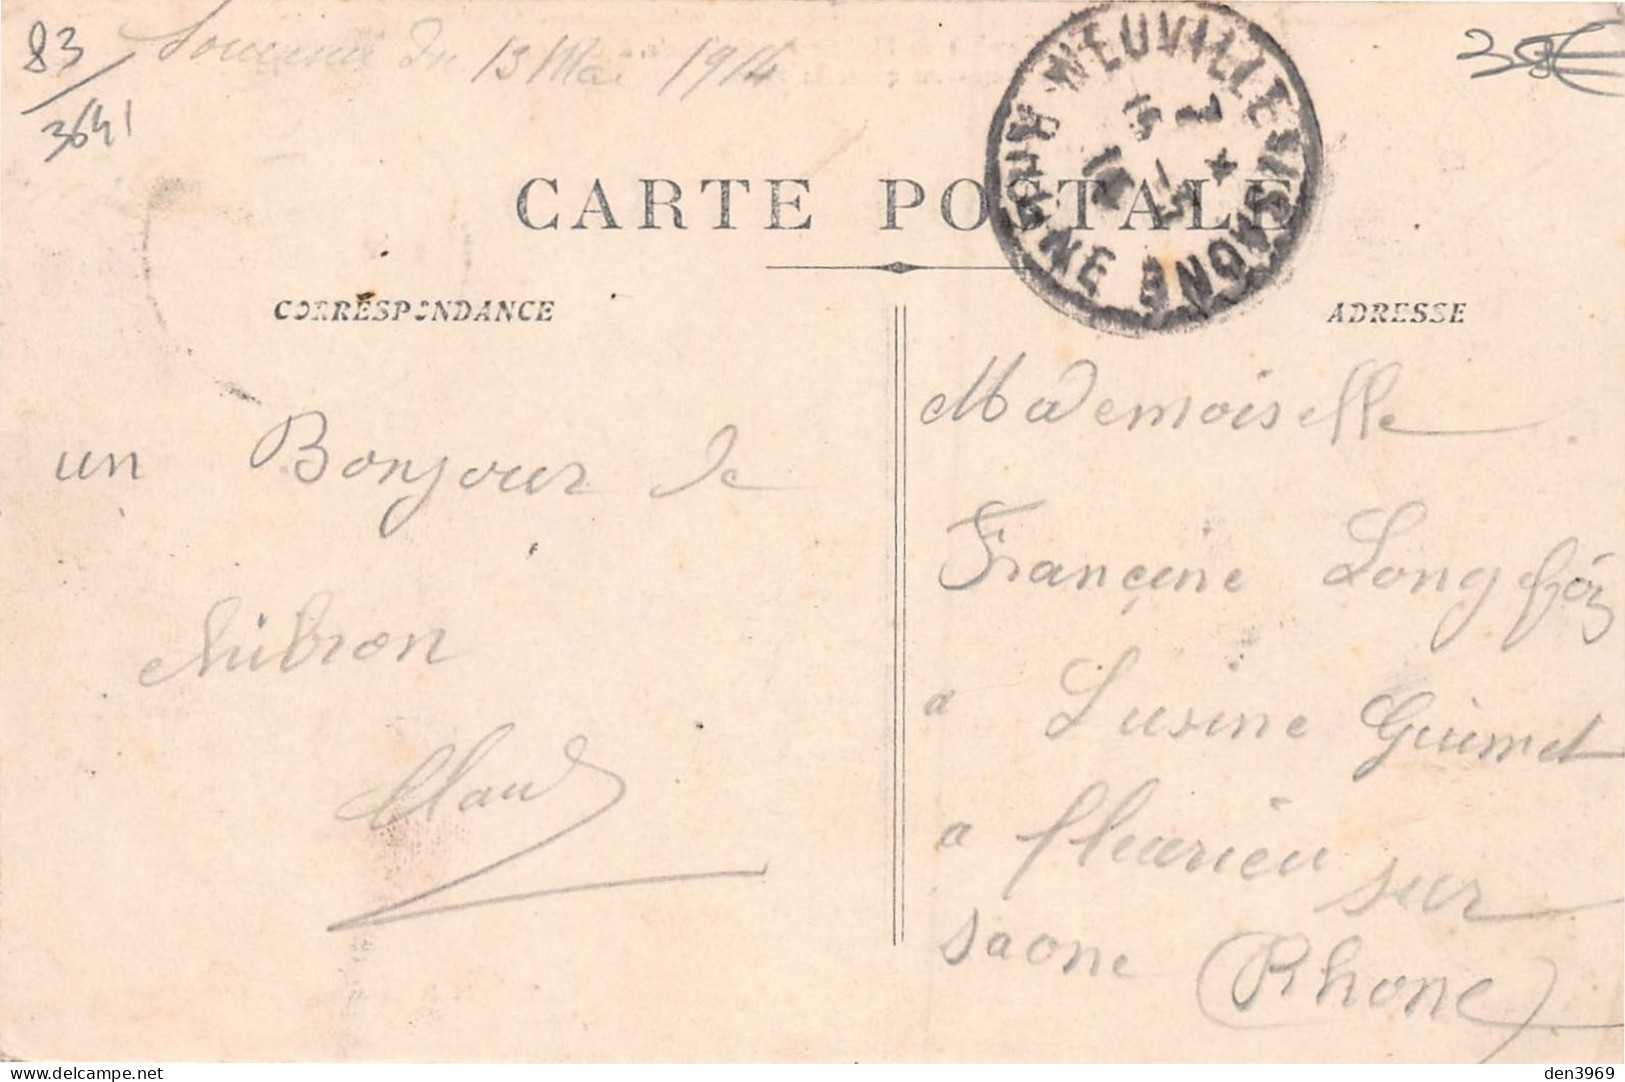 83
3641
Souvenir du 13 Mai 1914
NEUVILLE-S-SAONE
RHONE
CARTE POSTALE
CORRESPONDANCE
ADRESSE
un Bonjour de
chibron
Claud
Mademoiselle
Françine Long
a Lusine Guimet
a fleurieu sur
saone (Rhone)
den3969